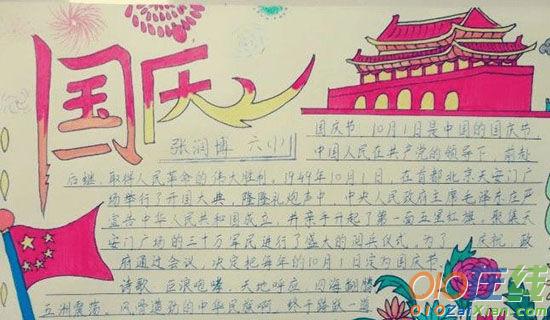 国庆
张润博 六(1)
国庆节,10月1日是中国的国庆节,
中国人民在共产党的领导下,前赴
后继,取得人民革命的伟大胜利,1949年10月1日,在首都北京天安门广
场举行了开国大典,隆隆礼炮声中,中央人民政府主席毛泽东在严
宣告中华人民共和国成立,并亲手升起了第一面五星红旗,聚集天
安门广场的三十万军民进行了盛大的阅兵仪式,为了 庆祝,政
府通过会议,决定把每年的10月1日定为国庆节。
诗歌:巨浪咆哮,天地呼应,四海翻腾
五洲震荡,风雷激动的中华民族啊
在线
ZaiXian.com